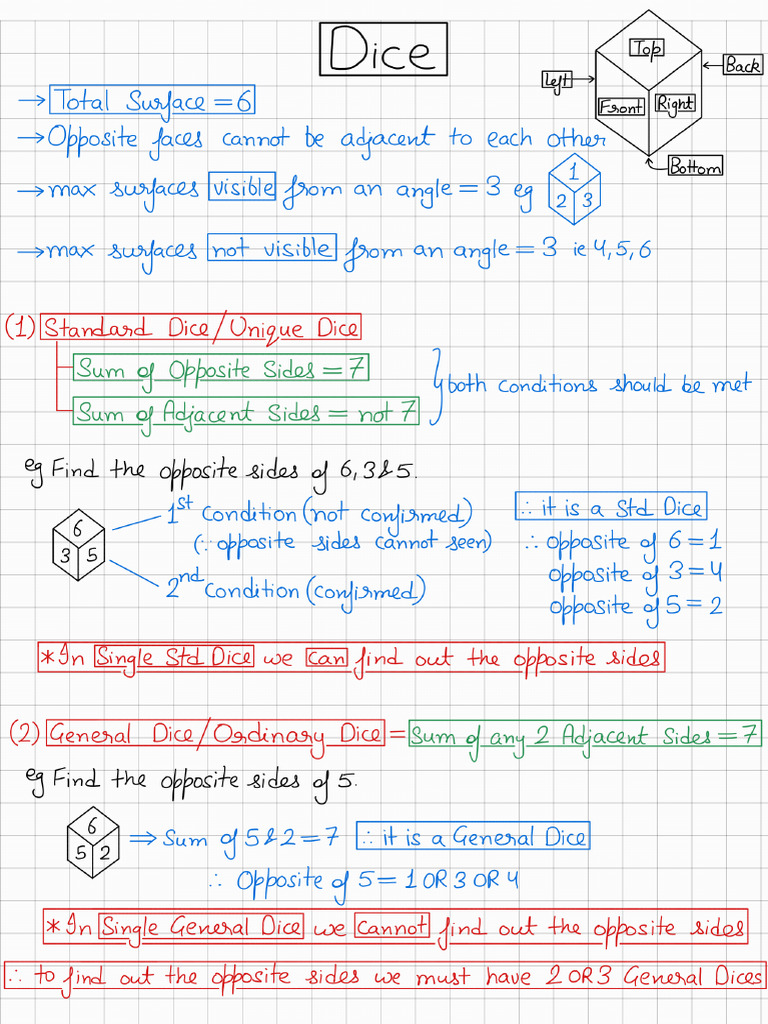 Dice
Top
Left
Back
Front
Right
Bottom
→ Total Surface = 6
→ Opposite faces cannot be adjacent to each other
→ max surfaces visible from an angle = 3 eg
1
2 3
→ max surfaces not visible from an angle = 3 ie 4,5,6
(1) Standard Dice/Unique Dice
Sum of Opposite Sides = 7
Sum of Adjacent Sides = not 7
both conditions should be met
eg Find the opposite sides of 6,3&5.
6
3 5
1st condition (not confirmed)
(∵ opposite sides cannot seen)
2nd condition (confirmed)
∴ it is a Std Dice
∴ opposite of 6 = 1
opposite of 3 = 4
opposite of 5 = 2
*In Single Std Dice we can find out the opposite sides
(2) General Dice/Ordinary Dice = Sum of any 2 Adjacent Sides = 7
eg Find the opposite sides of 5.
6
5 2
⇒ Sum of 5&2 = 7 ∴ it is a General Dice
∴ Opposite of 5 = 1 OR 3 OR 4
*In Single General Dice we cannot find out the opposite sides
∴ to find out the opposite sides we must have 2 OR 3 General Dices